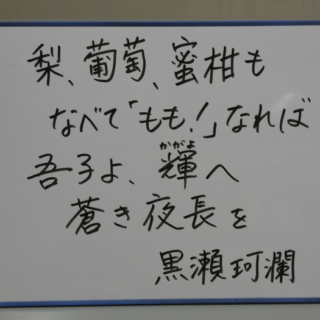 梨、葡萄、蜜柑も
なべて「もも!」なれば
吾子よ、輝へ
かがよ
蒼き夜長を
黒瀬珂瀾